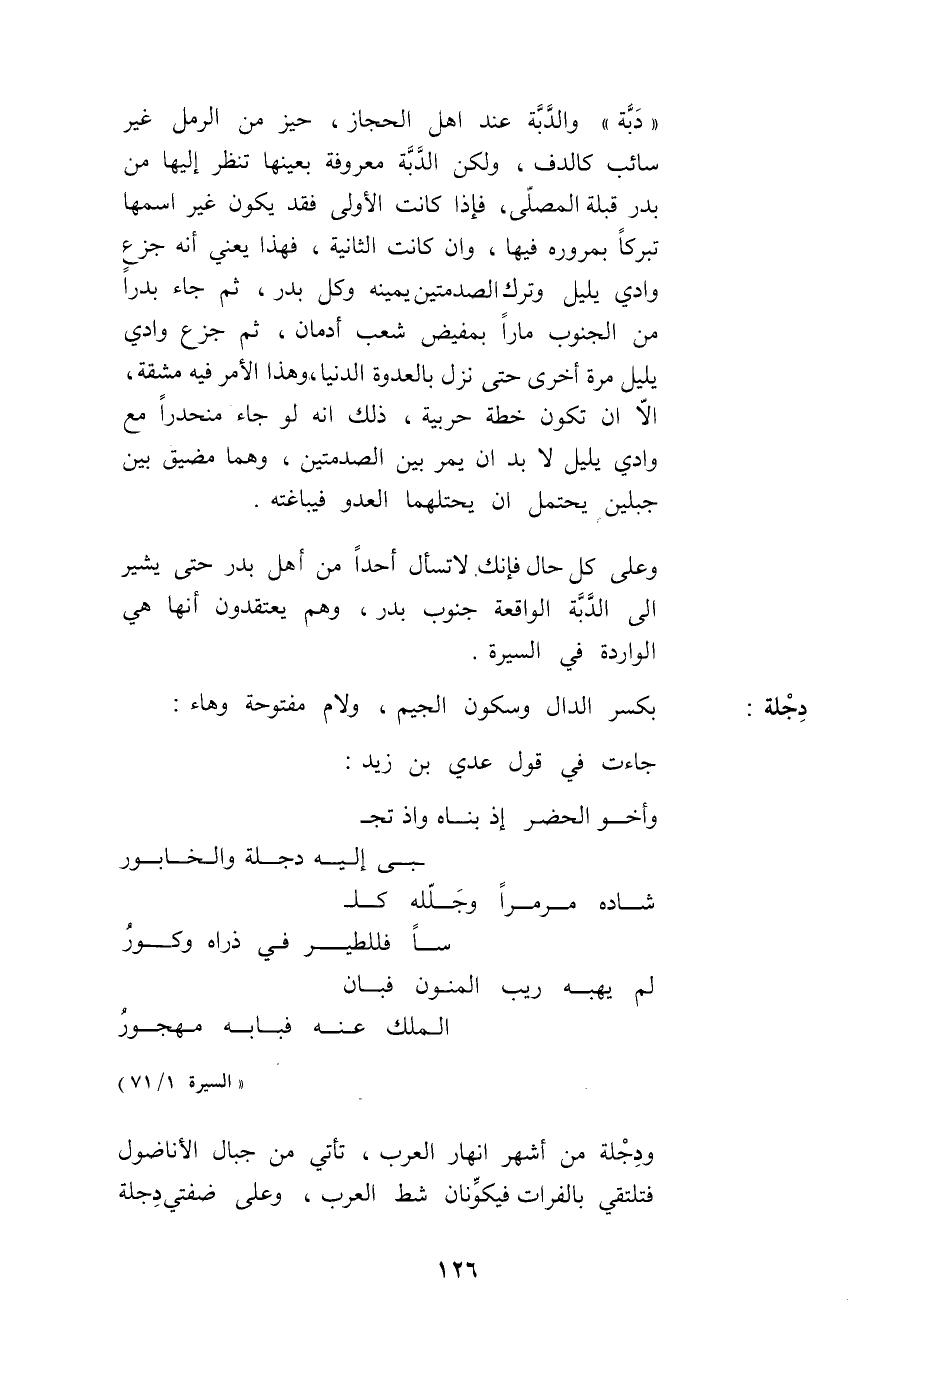 « دَبَّة » والدَّبَّة عند اهل الحجاز ، حيز من الرمل غير
سائب كالدف ، ولكن الدَّبَّة معروفة بعينها تنظر إليها من
بدر قبلة المصلّى، فإذا كانت الأولى فقد يكون غير اسمها
تبركاً بمروره فيها ، وان كانت الثانية ، فهذا يعني أنه جزع
وادي يليل وترك الصدمتين يمينه وكل بدر ، ثم جاء بدراً
من الجنوب ماراً بمفيض شعب أدمان ، ثم جزع وادي
يليل مرة أخرى حتى نزل بالعدوة الدنيا، وهذا الأمر فيه مشقة ،
الّا ان تكون خطة حربية ، ذلك انه لو جاء منحدراً مع
وادي يليل لا بد ان يمر بين الصدمتين ، وهما مضيق بين
جبلين يحتمل ان يحتلهما العدو فيباغته .
وعلى كل حال فإنك لا تسأل أحداً من أهل بدر حتى يشير
الى الدَّبَّة الواقعة جنوب بدر ، وهم يعتقدون أنها هي
الواردة في السيرة .
دِجْلة : بكسر الدال وسكون الجيم ، ولام مفتوحة وهاء :
جاءت في قول عدي بن زيد :
وأخو الحضر إذ بناه واذ تجـ
ـبى إليه دجلة والخابور
شاده مرمراً وجَلّله كلـ
ـساً فللطير في ذراه وكورُ
لم يهبه ريب المنون فبان
الملك عنه فبابه مهجورُ
« السيرة ٧١/١ )
ودِجْلة من أشهر انهار العرب ، تأتي من جبال الأناضول
فتلتقي بالفرات فيكوِّنان شط العرب ، وعلى ضفتي دِجلة
١٢٦